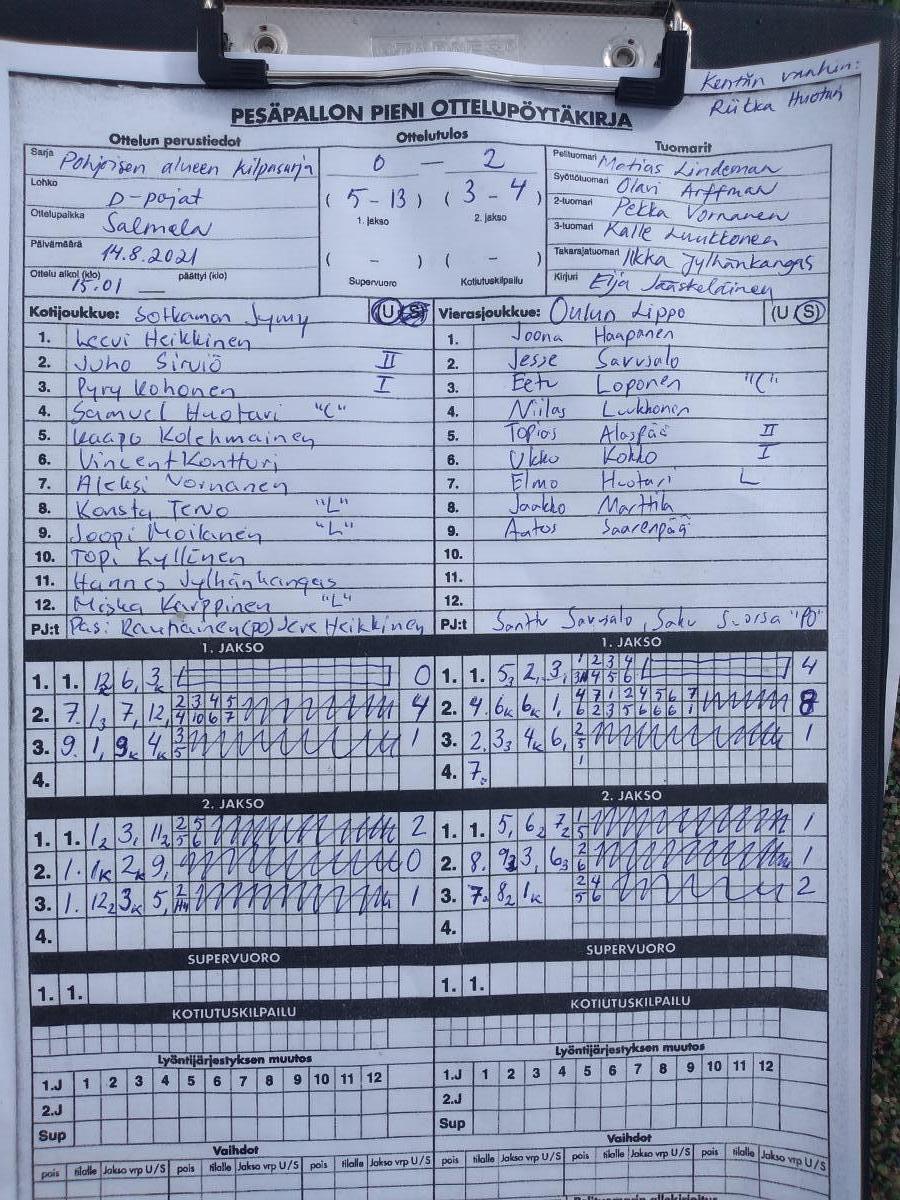 Kentän vanhin:
Riikka Huotari
PESÄPALLON PIENI OTTELUPÖYTÄKIRJA
Ottelun perustiedot
Sarja Pohjoisen alueen kilpasarja
Lohko D-pojat
Ottelupaikka Salmela
Päivämäärä 14.8.2021
Ottelu alkoi (klo) 15.01 päättyi (klo)
Ottelutulos
0 - 2
(5-13) (3-4)
1. jakso 2. jakso
( - ) ( - )
Supervuoro Kotiutuskilpailu
Tuomarit
Pelituomari Matias Lindeman
Syöttötuomari Olavi Arffman
2-tuomari Pekka Vornanen
3-tuomari Kalle Luukkonen
Takarajatuomari Ilkka Jylhänkangas
Kirjuri Eija Jääskeläinen
Kotijoukkue: Sotkamon Jymy (U S)
1. Leevi Heikkinen
2. Juho Sirviö II
3. Pyry Kohonen I
4. Samuel Huotari "C"
5. Kaapo Kolehmainen
6. Vincent Kontturi
7. Aleksi Vornanen
8. Konsta Tervo "L"
9. Joopi Moilanen "L"
10. Topi Kyllönen
11. Hannes Jylhänkangas
12. Miska Karppinen "L"
PJ:t Pasi Rautiainen (PO) Jere Heikkinen
Vierasjoukkue: Oulun Lippo (U S)
1. Joona Haapanen
2. Jesse Savusalo
3. Eetu Loponen "C"
4. Niilas Luukkonen
5. Topias Alaspää II
6. Ukko Kokko I
7. Elmo Huotari L
8. Jaakko Marttila
9. Aatos Saarenpää
10.
11.
12.
PJ:t Santtu Savusalo, Saku Suorsa "PO"
1. JAKSO
1. 1. 6, 0
2. 7. 7, 12, 4
3. 9. 1, 9K 4K 1
4.
2. JAKSO
1. 1. 3, 11₂ 2
2. 1. 1K 2K 9, 0
3. 1. 12₂ 3K 5, 1
4.
SUPERVUORO
1. 1.
KOTIUTUSKILPAILU
Lyöntijärjestyksen muutos
1.J 1 2 3 4 5 6 7 8 9 10 11 12
2.J
Sup
Vaihdot
pois tilalle Jakso vrp U/S pois tilalle Jakso vrp U/S pois tilalle Jakso vrp U/S
1. JAKSO
1. 1. 5₃ 2, 3, 4
2. 4. 6K 6K 1, 8
3. 2. 3₃ 4K 6, 1
4. 7.
2. JAKSO
1. 1. 5, 6₂ 7₂ 1
2. 8. 3, 6₃ 1
3. 7. 8₂ 1K 2
4.
SUPERVUORO
1. 1.
KOTIUTUSKILPAILU
Lyöntijärjestyksen muutos
1.J 1 2 3 4 5 6 7 8 9 10 11 12
2.J
Sup
Vaihdot
pois tilalle Jakso vrp U/S pois tilalle Jakso vrp U/S pois tilalle Jakso vrp U/S